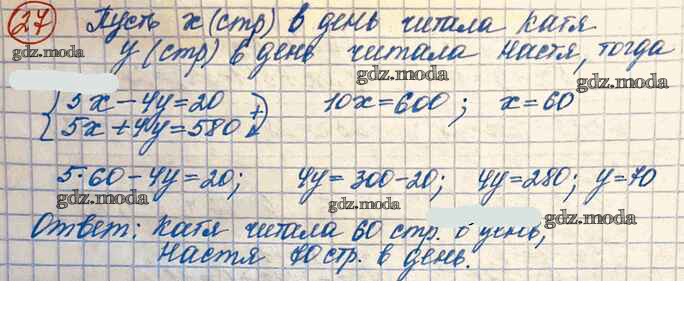 27 Пусть x (стр) в день читала Катя
gdz.moda
y (стр) в день читала Настя, тогда
gdz.moda
gdz.moda
{ 5x-4y=20
5x+4y=580 + 10x=600; x=60
gdz.moda
5·60-4y=20; 4y=300-20; 4y=280; y=70
gdz.moda
gdz.moda
gdz.moda
Ответ: Катя читала 60 стр. в день,
Настя 70 стр. в день.